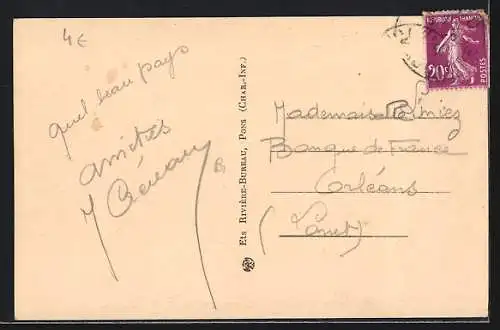 4€
quel beau pays
amitiés
Ets RIVIÈRE-BUREAU, PONS (CHAR.-INF.)
20c
POSTES
Mademoiselle
Banque de France
Orléans
(Loiret)